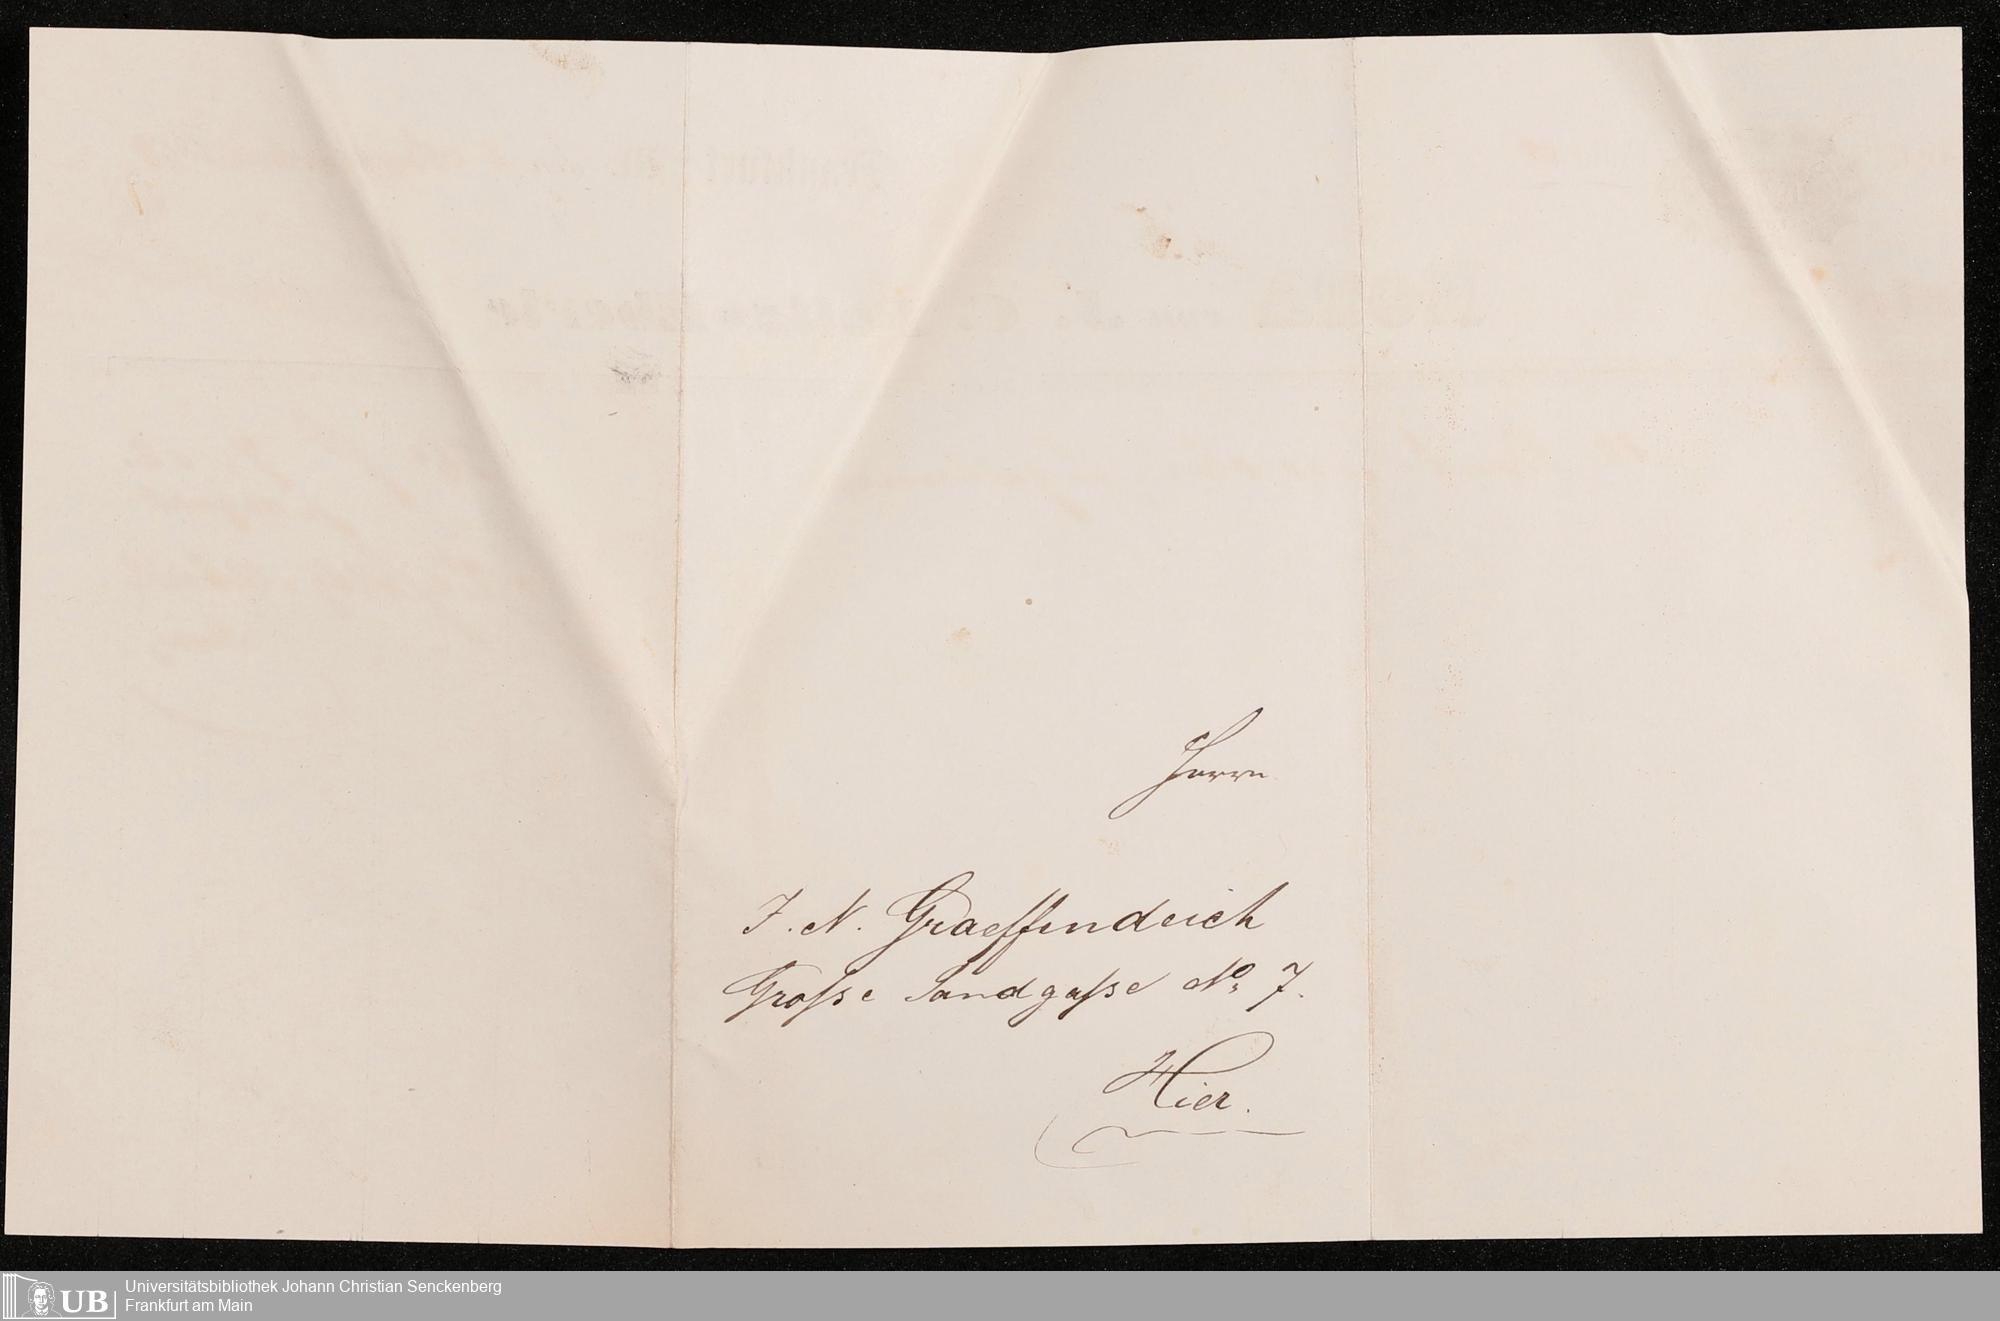 Herrn
J. N. Graeffendeich
Grosse Sandgasse No 7.
Hier.
UB
Universitätsbibliothek Johann Christian Senckenberg
Frankfurt am Main